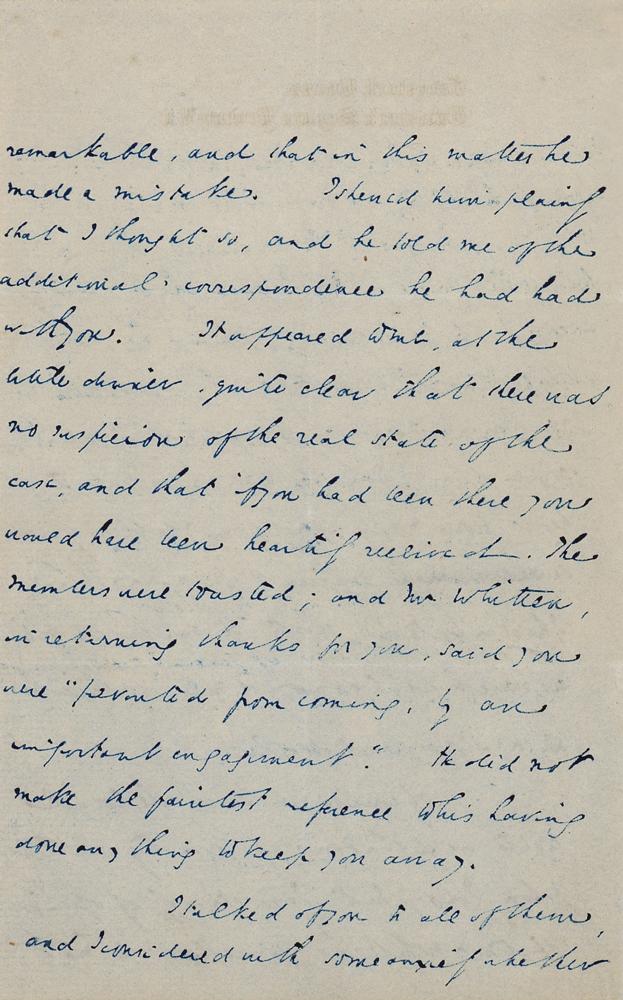 remarkable, and that in this matter he
made a mistake. I shewed him plainly
that I thought so, and he told me of the
additional correspondence he had had
with you. It appeared to me, at the
little dinner, quite clear that there was
no suspicion of the real state of the
case, and that if you had been there you
would have been heartily received. The
members were toasted; and Mr Whitten,
in returning thanks for you, said you
were "prevented from coming, by an
important engagement." He did not
make the faintest reference to his having
done any thing to keep you away.
I talked of you to all of them,
and I considered with some anxiety whether